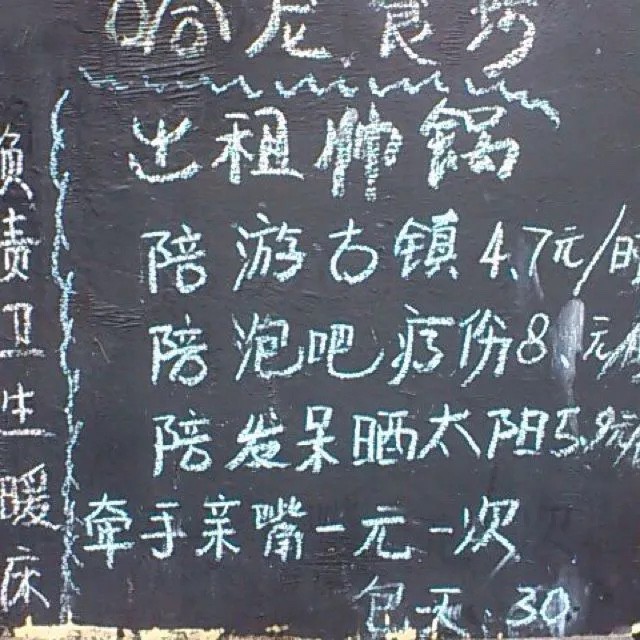 哈龙食坊
出租帅锅
陪游古镇4.7元/时
陪泡吧疗伤8.元/
陪发呆晒太阳5.
牵手亲嘴一元一次
包天:30
负责卫生暖床